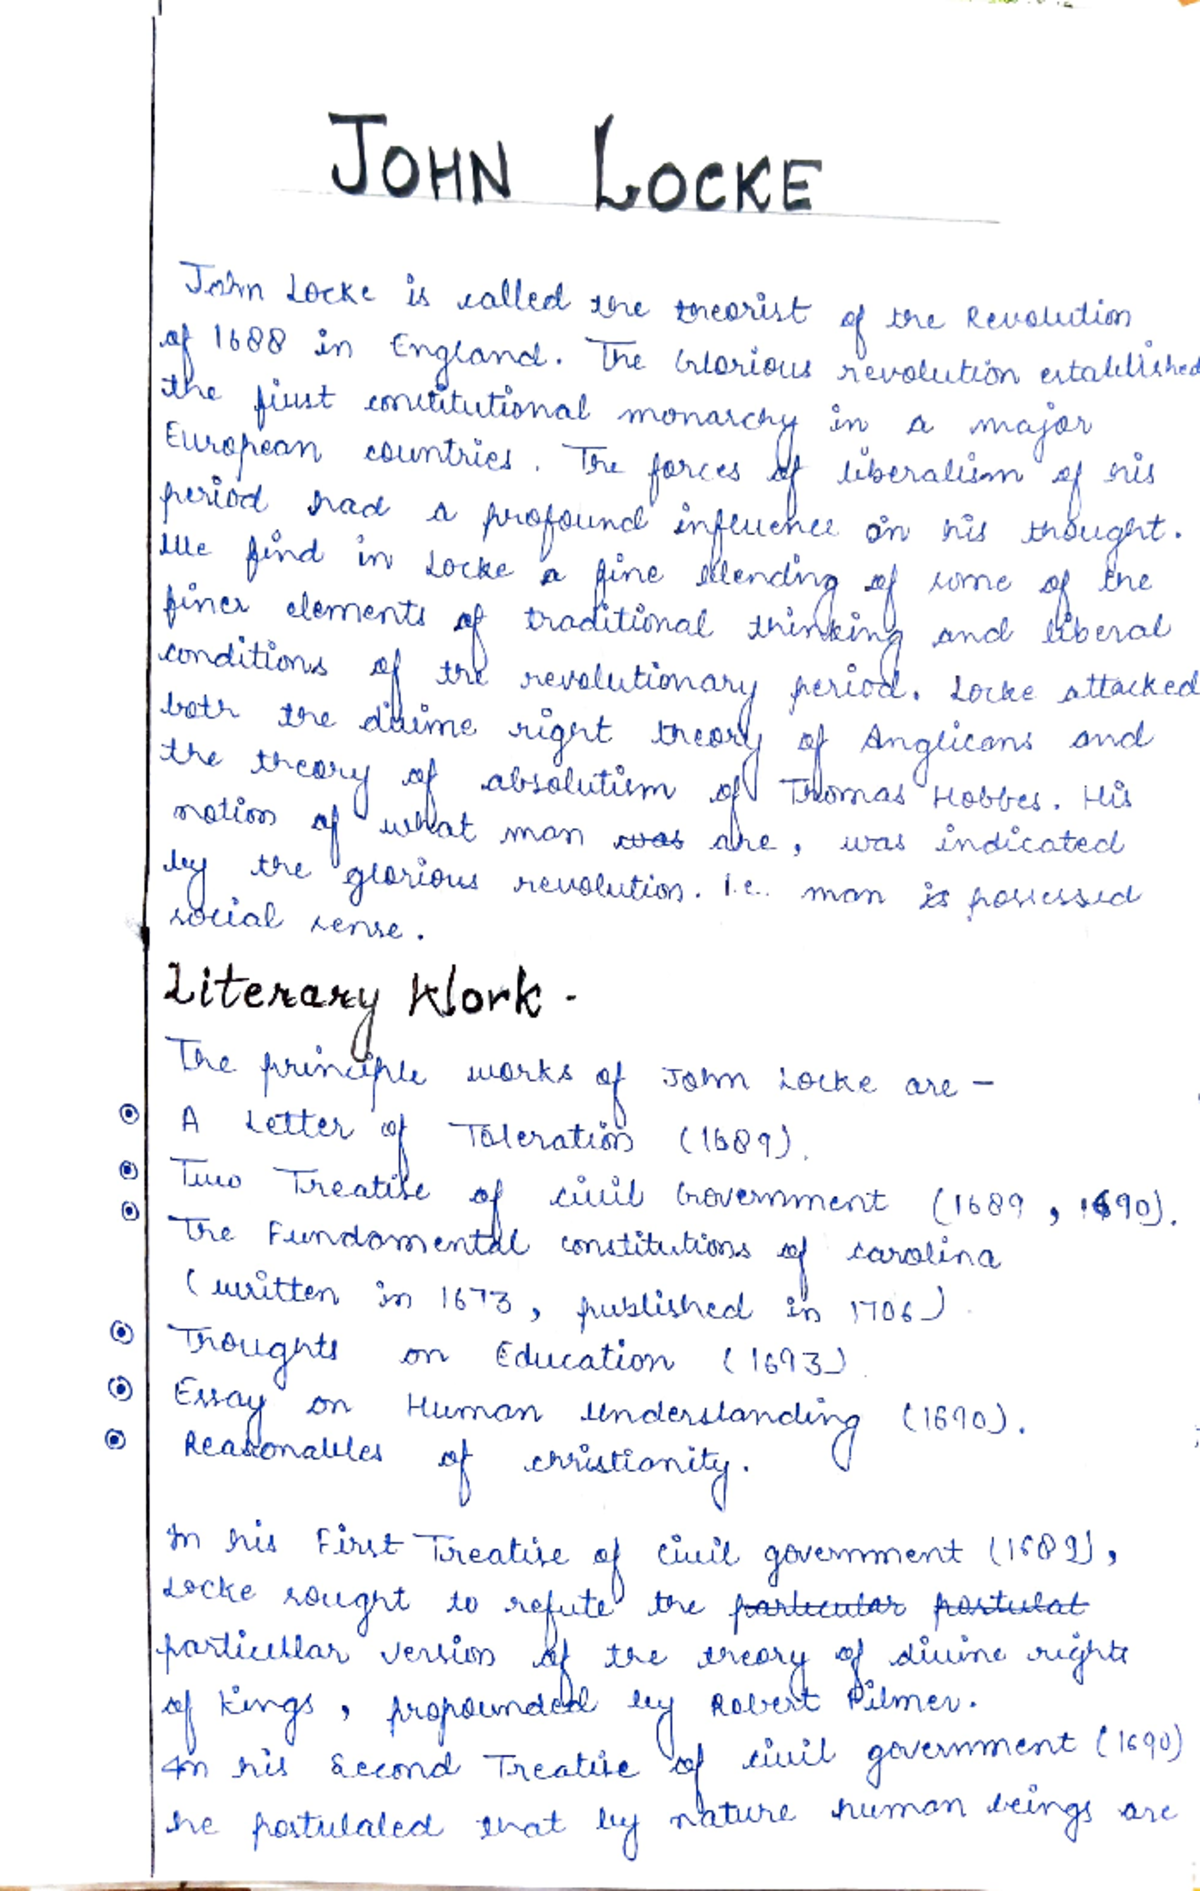 JOHN LOCKE
John Locke is called the theorist of the Revolution
of 1688 in England. The Glorious revolution established
the first constitutional monarchy in a major
European countries. The forces of liberalism of his
period had a profound influence on his thought.
We find in Locke a fine blending of some of the
finer elements of traditional thinking and liberal
conditions of the revolutionary period. Locke attacked
both the divine right theory of Anglicans and
the theory of absolutism of Thomas Hobbes. His
notion of what man was are, was indicated
by the glorious revolution. i.e. man is possessed
social sense.
Literary Work -
The principle works of John Locke are -
A Letter of Toleration (1689).
Two Treatise of civil Government (1689, 1690).
The Fundamental constitutions of carolina
(written in 1673, published in 1706)
Thoughts on Education (1693)
Essay on Human Understanding (1690).
Reasonables of christianity.
In his First Treatise of civil government (1689),
Locke sought to refute the particular postulat
particular version of the theory of divine rights
of kings, propounded by Robert Filmer.
In his Second Treatise of civil government (1690)
he postulated that by nature human beings are